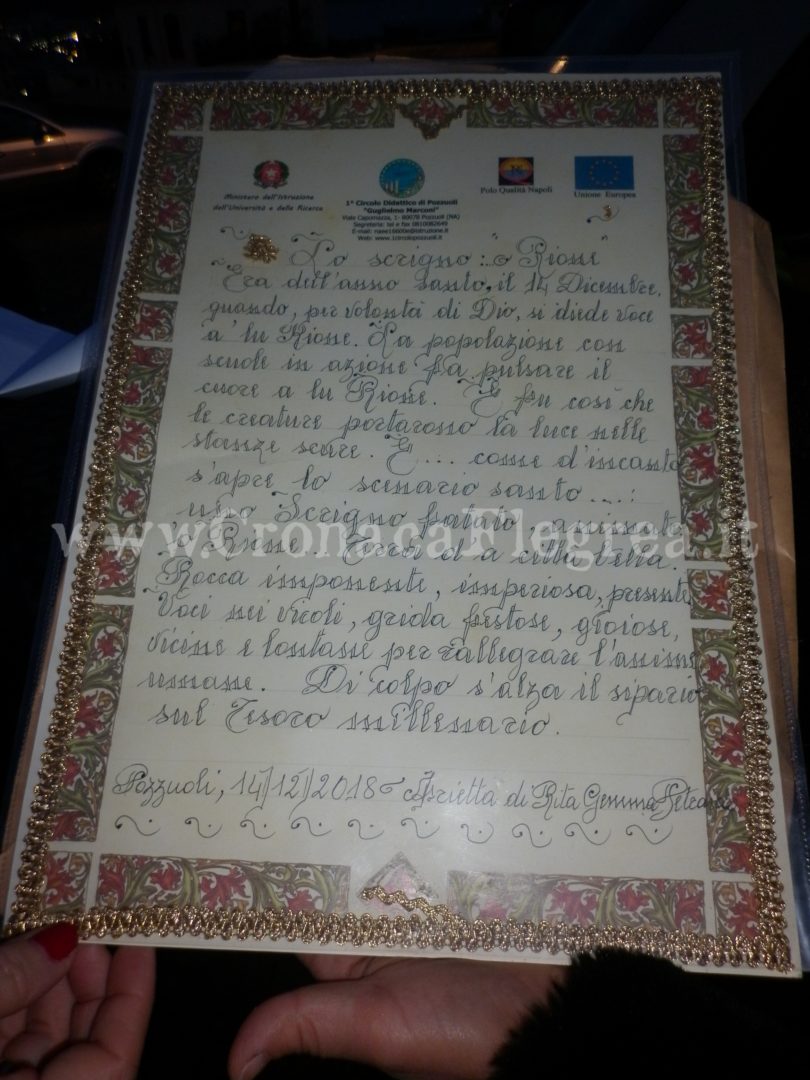 Ministero dell'Istruzione
dell'Università e della Ricerca
1° Circolo Didattico di Pozzuoli
"Guglielmo Marconi"
Viale Capomazza, 1- 80078 Pozzuoli (NA)
Segreteria: tel e fax 0810082649
E-mail: naee16600e@istruzione.it
Web: www.1circolopozzuoli.it
Polo Qualità Napoli
Unione Europea
Lo scrigno: 'o Rione
Era dell'anno santo, il 14 Dicembre,
quando, per volontà di Dio, si diede voce
a' lu Rione. La popolazione con
scuole in azione fa pulsare il
cuore a lu Rione. E fu così che
le creature portarono la luce nelle
stanze scure. E... come d'incanto
s'apre lo scenario santo...:
uno Scrigno fatato
'o Rione. Terra d'a città bella.
Rocca imponente, imperiosa, presente
Voci nei vicoli, grida festose, gioiose,
vicine e lontane per rallegrare l'anime
umane. Di colpo s'alza il sipario
sul Tesoro millenario.
Pozzuoli, 14/12/2018 di Rita Gemma
www.CronacaFlegrea.it